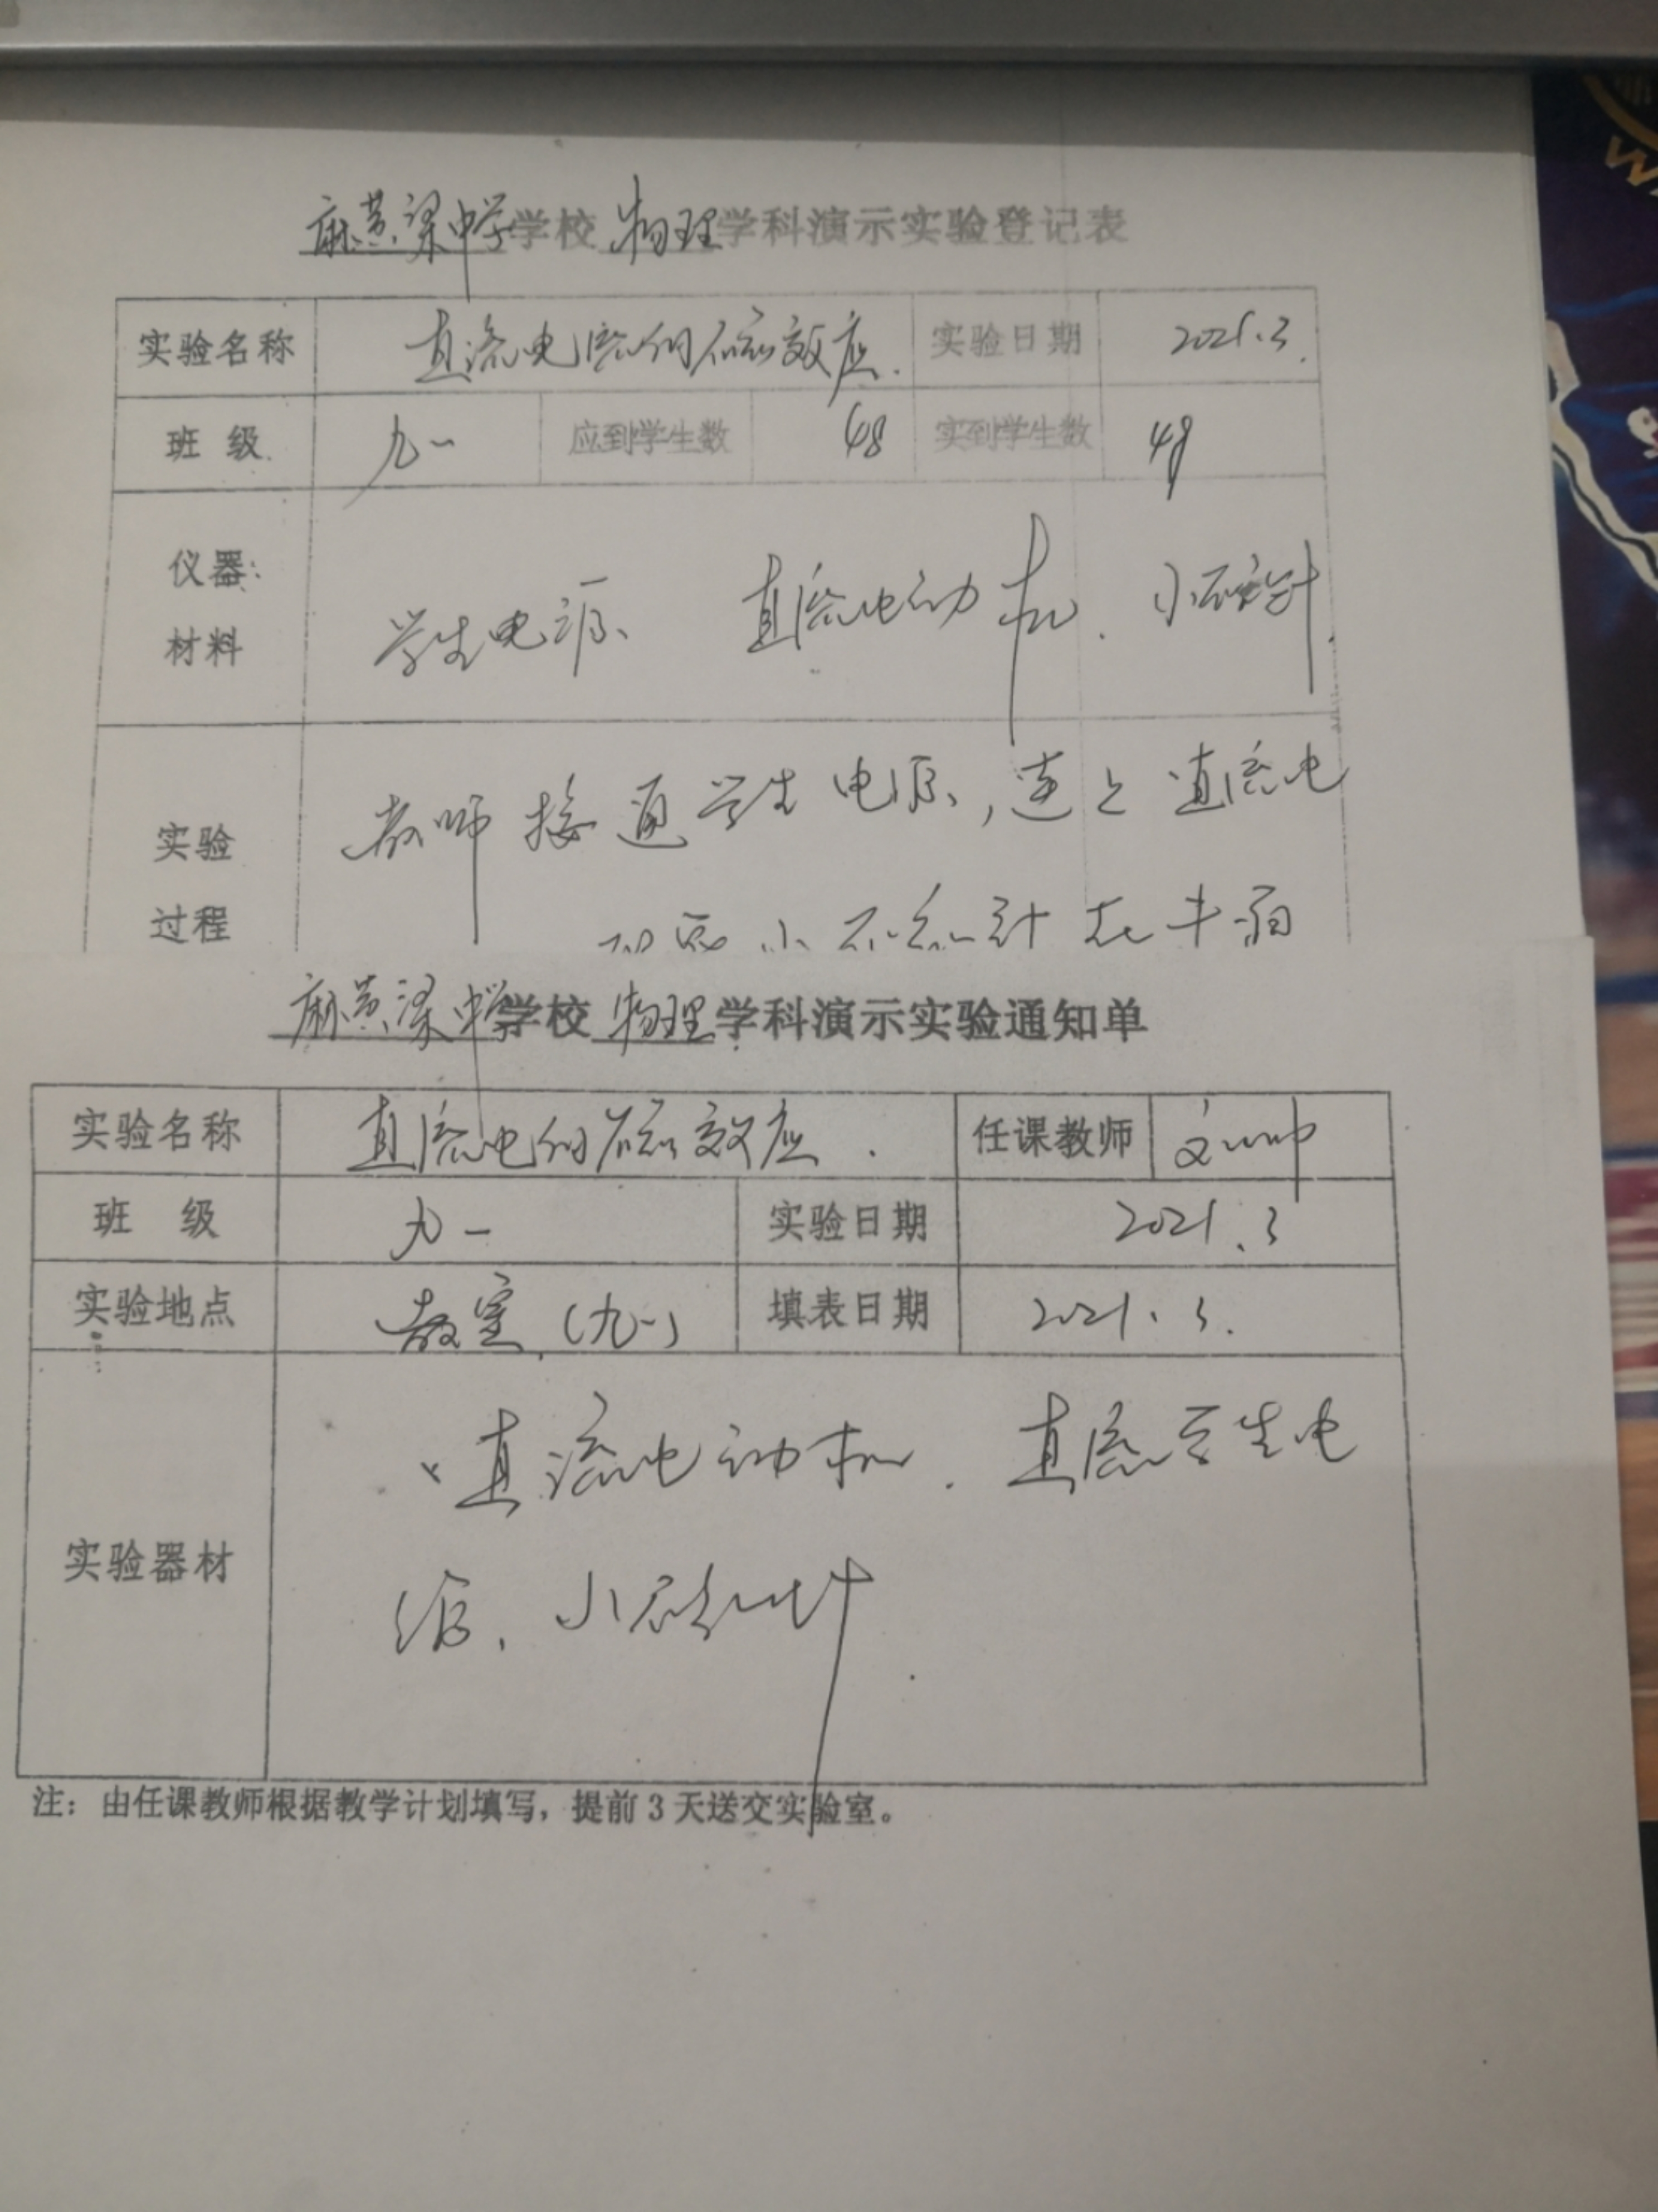 麻黄梁中学学校 物理学科演示实验登记表
实验名称 直流电流的磁效应. 实验日期 2021.3.
班 级 九一 应到学生数 48 实到学生数 48
仪器:
材料 学生电源、 直流电动机. 小磁针.
实验 教师接通学生电源,连上直流电
过程 小磁针在
麻黄梁中学学校 物理学科演示实验通知单
实验名称 直流电的磁效应. 任课教师
班 级 九一 实验日期 2021.3
实验地点 教室(九一) 填表日期 2021.3.
实验器材 直流电动机. 直流学生电
源、小磁针
注：由任课教师根据教学计划填写，提前3天送交实验室。